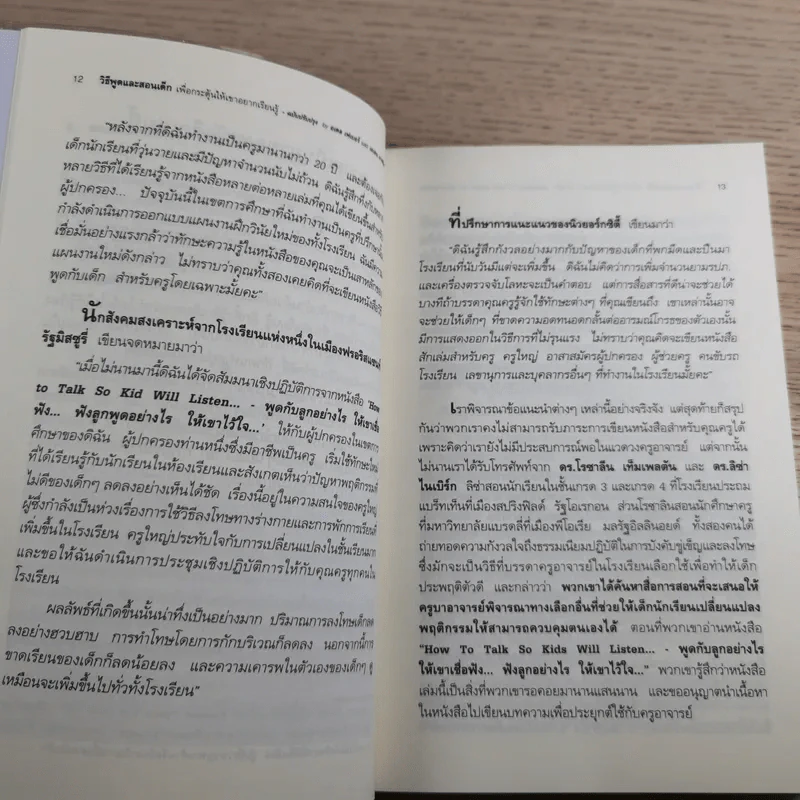 12 วิธีพูดและสอนเด็ก เพื่อกระตุ้นให้เขาอยากเรียนรู้ - ฉบับปรับปรุง
"หลังจากที่ดิฉันทำงานเป็นครูมานานกว่า 20 ปี และต้อง
เด็กนักเรียนที่วุ่นวายและมีปัญหาจำนวนนับไม่ถ้วน ดิฉันรู้สึกทึ่งกับ
หลายวิธีที่ได้เรียนรู้จากหนังสือหลายต่อหลายเล่มที่คุณได้เขียนขึ้นสำหรับ
ผู้ปกครอง... ปัจจุบันนี้ในเขตการศึกษาที่ฉันทำงานเป็นครูที่ปรึกษานั้น
กำลังดำเนินการออกแบบแผนงานฝึกวินัยใหม่ของทั้งโรงเรียน ฉันมีความ
เชื่อมั่นอย่างแรงกล้าว่าทักษะความรู้ในหนังสือของคุณจะเป็นเสาหลักของ
แผนงานใหม่ดังกล่าว ไม่ทราบว่าคุณทั้งสองเคยคิดที่จะเขียนหนังสือวิธี
พูดกับเด็ก สำหรับครูโดยเฉพาะมั้ยคะ"
นักสังคมสงเคราะห์จากโรงเรียนแห่งหนึ่งในเมืองฟรอริสแซนท์
รัฐมิสซูรี่ เขียนจดหมายมาว่า
"เมื่อไม่นานมานี้ดิฉันได้จัดสัมมนาเชิงปฏิบัติการจากหนังสือ 'How
to Talk So Kid Will Listen... - พูดกับลูกอย่างไร ให้เขาเชื่อ
ฟัง... ฟังลูกพูดอย่างไร ให้เขาไว้ใจ...' ให้กับผู้ปกครองในเขตการ
ศึกษาของดิฉัน ผู้ปกครองท่านหนึ่งซึ่งมีอาชีพเป็นครู เริ่มใช้ทักษะใหม่
ที่ได้เรียนรู้กับนักเรียนในห้องเรียนและสังเกตเห็นว่าปัญหาพฤติกรรมที่
ไม่ดีของเด็กๆ ลดลงอย่างเห็นได้ชัด เรื่องนี้อยู่ในความสนใจของครูใหญ่
ผู้ซึ่งกำลังเป็นห่วงเรื่องการใช้วิธีลงโทษทางร่างกายและการพักการเรียนที่
เพิ่มขึ้นในโรงเรียน ครูใหญ่ประทับใจกับการเปลี่ยนแปลงในชั้นเรียนมาก
และขอให้ฉันดำเนินการประชุมเชิงปฏิบัติการให้กับคุณครูทุกคนใน
โรงเรียน
ผลลัพธ์ที่เกิดขึ้นนั้นน่าทึ่งเป็นอย่างมาก ปริมาณการลงโทษเด็กลด
ลงอย่างฮวบฮาบ การทำโทษโดยการกักบริเวณก็ลดลง นอกจากนี้การ
ขาดเรียนของเด็กก็ลดน้อยลง และความเคารพในตัวเองของเด็กๆ ดู
เหมือนจะเพิ่มขึ้นไปทั่วทั้งโรงเรียน"
13
ที่ปรึกษาการแนะแนวของนิวยอร์กซิตี้ เขียนมาว่า
"ดิฉันรู้สึกกังวลอย่างมากกับปัญหาของเด็กที่พกมีดและปืนมา
โรงเรียนที่นับวันมีแต่จะเพิ่มขึ้น ดิฉันไม่คิดว่าการเพิ่มจำนวนยามรปภ.
และเครื่องตรวจจับโลหะจะเป็นคำตอบ แต่การสื่อสารที่ดีน่าจะช่วยได้
บางทีถ้าบรรดาคุณครูรู้จักใช้ทักษะต่างๆ ที่คุณเขียนถึง เขาเหล่านั้นอาจ
จะช่วยให้เด็กๆ ที่ขาดความอดทนอดกลั้นต่ออารมณ์โกรธของตัวเองนั้น
มีการแสดงออกในวิธีการที่ไม่รุนแรง ไม่ทราบว่าคุณคิดจะเขียนหนังสือ
สักเล่มสำหรับครู ครูใหญ่ อาสาสมัครผู้ปกครอง ผู้ช่วยครู คนขับรถ
โรงเรียน เลขานุการและบุคลากรอื่นๆ ที่ทำงานในโรงเรียนมั้ยคะ"
เราพิจารณาข้อแนะนำต่างๆ เหล่านี้อย่างจริงจัง แต่สุดท้ายก็สรุป
ว่าพวกเราคงไม่สามารถรับภาระการเขียนหนังสือสำหรับคุณครูได้
เพราะคิดว่าเรายังไม่มีประสบการณ์พอในแวดวงครูอาจารย์ แต่จากนั้น
ไม่นานเราได้รับโทรศัพท์จาก ดร.โรซาลีน เท็มเพลตัน และ ดร.ลิซ่า
ไนเบิร์ก ลิซ่าสอนนักเรียนในชั้นเกรด 3 และเกรด 4 ที่โรงเรียนประถม
แบร็ทเท็นที่เมืองสปริงฟิลด์ รัฐโอเรกอน ส่วนโรซาลินสอนนักศึกษาครู
ที่มหาวิทยาลัยแบรดลี่ที่เมืองพีโอเรีย มลรัฐอิลลินอยต์ ทั้งสองคนได้
ถ่ายทอดความกังวลใจถึงธรรมเนียมปฏิบัติในการบังคับขู่เข็ญและลงโทษ
ซึ่งมักจะเป็นวิธีที่บรรดาครูอาจารย์ในโรงเรียนเลือกใช้เพื่อทำให้เด็ก
ประพฤติตัวดี และกล่าวว่า พวกเขาได้ค้นหาสื่อการสอนที่จะเสนอให้
ครูบาอาจารย์พิจารณาทางเลือกอื่นที่ช่วยให้เด็กนักเรียนเปลี่ยนแปลง
พฤติกรรมให้สามารถควบคุมตนเองได้ ตอนที่พวกเขาอ่านหนังสือ
"How To Talk So Kids Will Listen... - พูดกับลูกอย่างไร
ให้เขาเชื่อฟัง... ฟังลูกอย่างไร ให้เขาไว้ใจ..." พวกเขารู้สึกว่าหนังสือ
เล่มนี้เป็นสิ่งที่พวกเขารอคอยมานานแสนนาน และขออนุญาตนำเนื้อหา
ในหนังสือไปเขียนบทความเพื่อประยุกต์ใช้กับครูอาจารย์